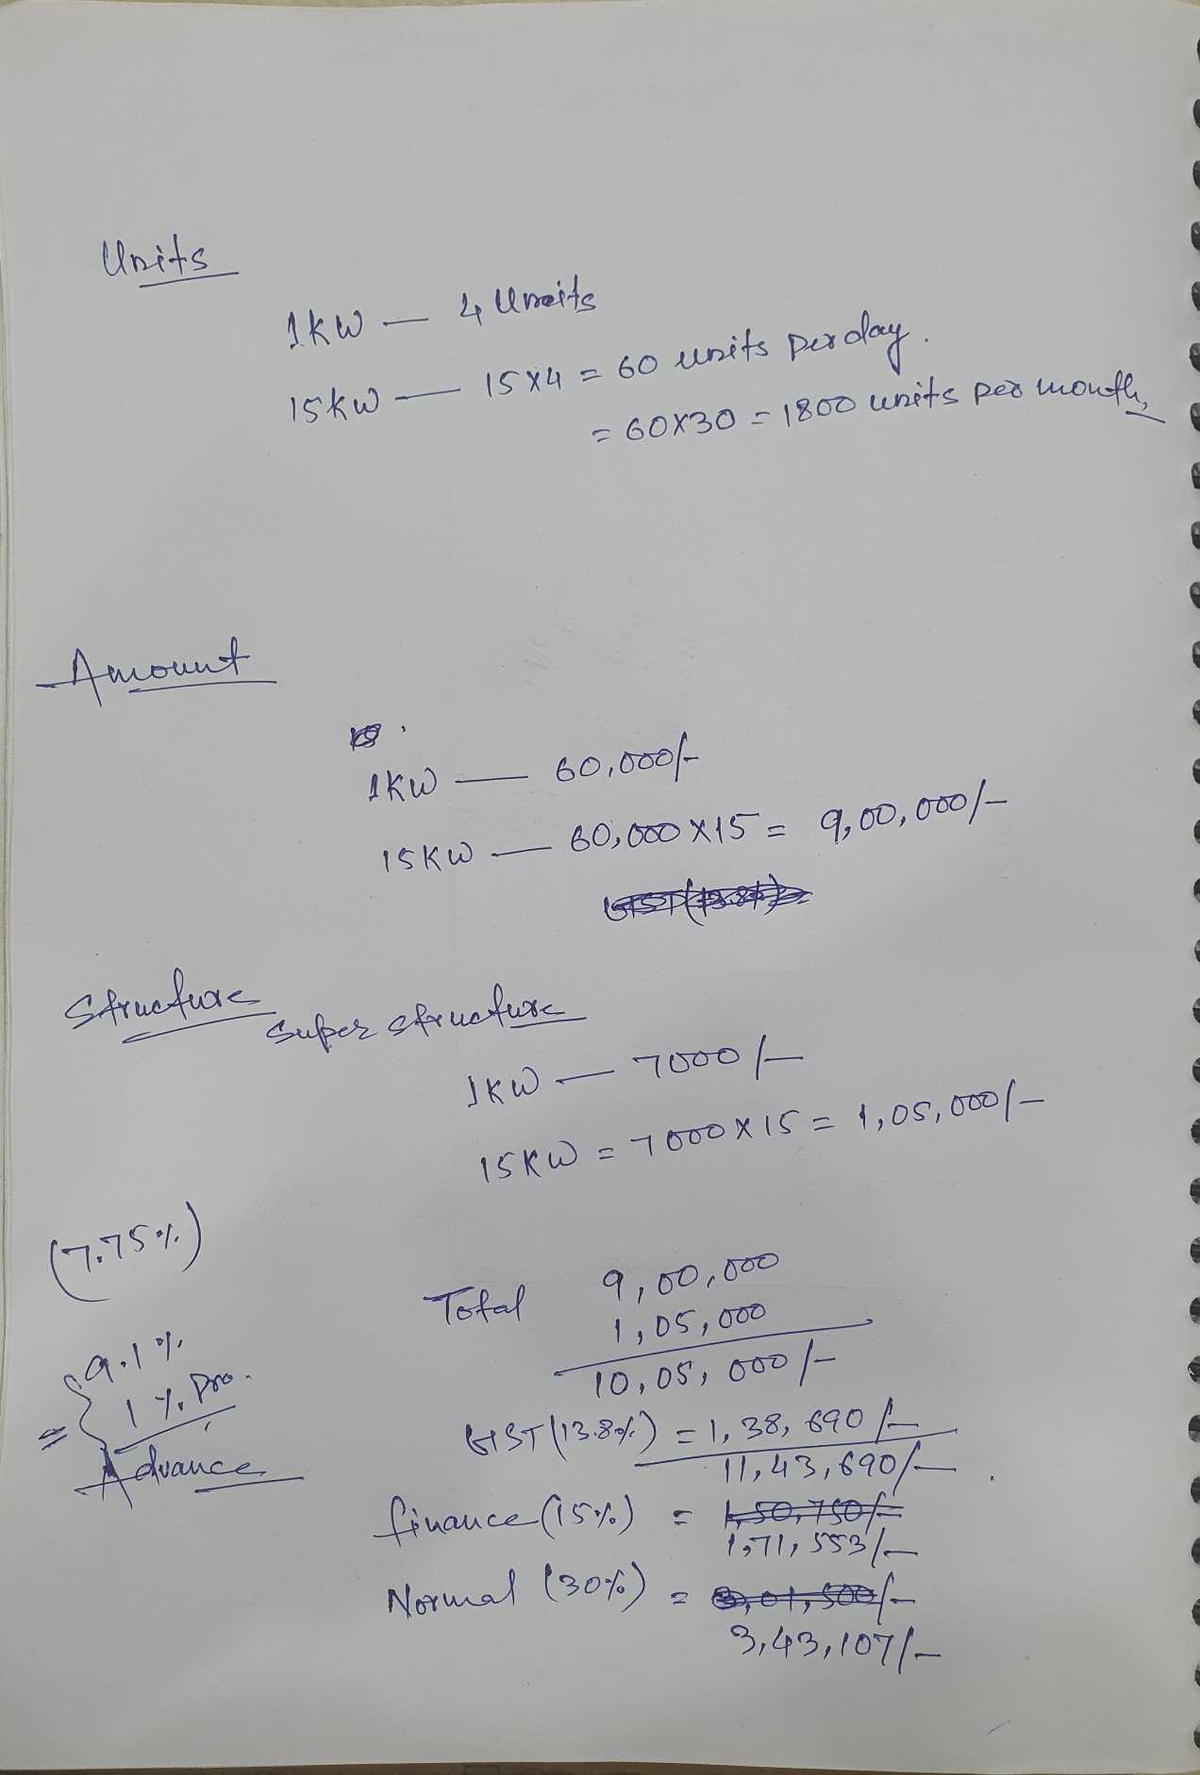 Units
1KW — 4 Units
15KW — 15X4 = 60 units per day.
= 60X30 = 1800 units per month,
Amount
1KW — 60,000/-
15KW — 60,000 X15 = 9,00,000/-
GST(13.8%)
Structure
Super structure
1KW — 7000/-
15KW = 7000 X 15 = 1,05,000/-
(7.75%)
Total 9,00,000
1,05,000
10,05,000/-
9.1%
1% pro.
= Advance
GST(13.8%) = 1,38,690/-
11,43,690/-
finance (15%) = 1,50,750/-
1,71,553/-
Normal (30%) = 3,01,500/-
3,43,107/-